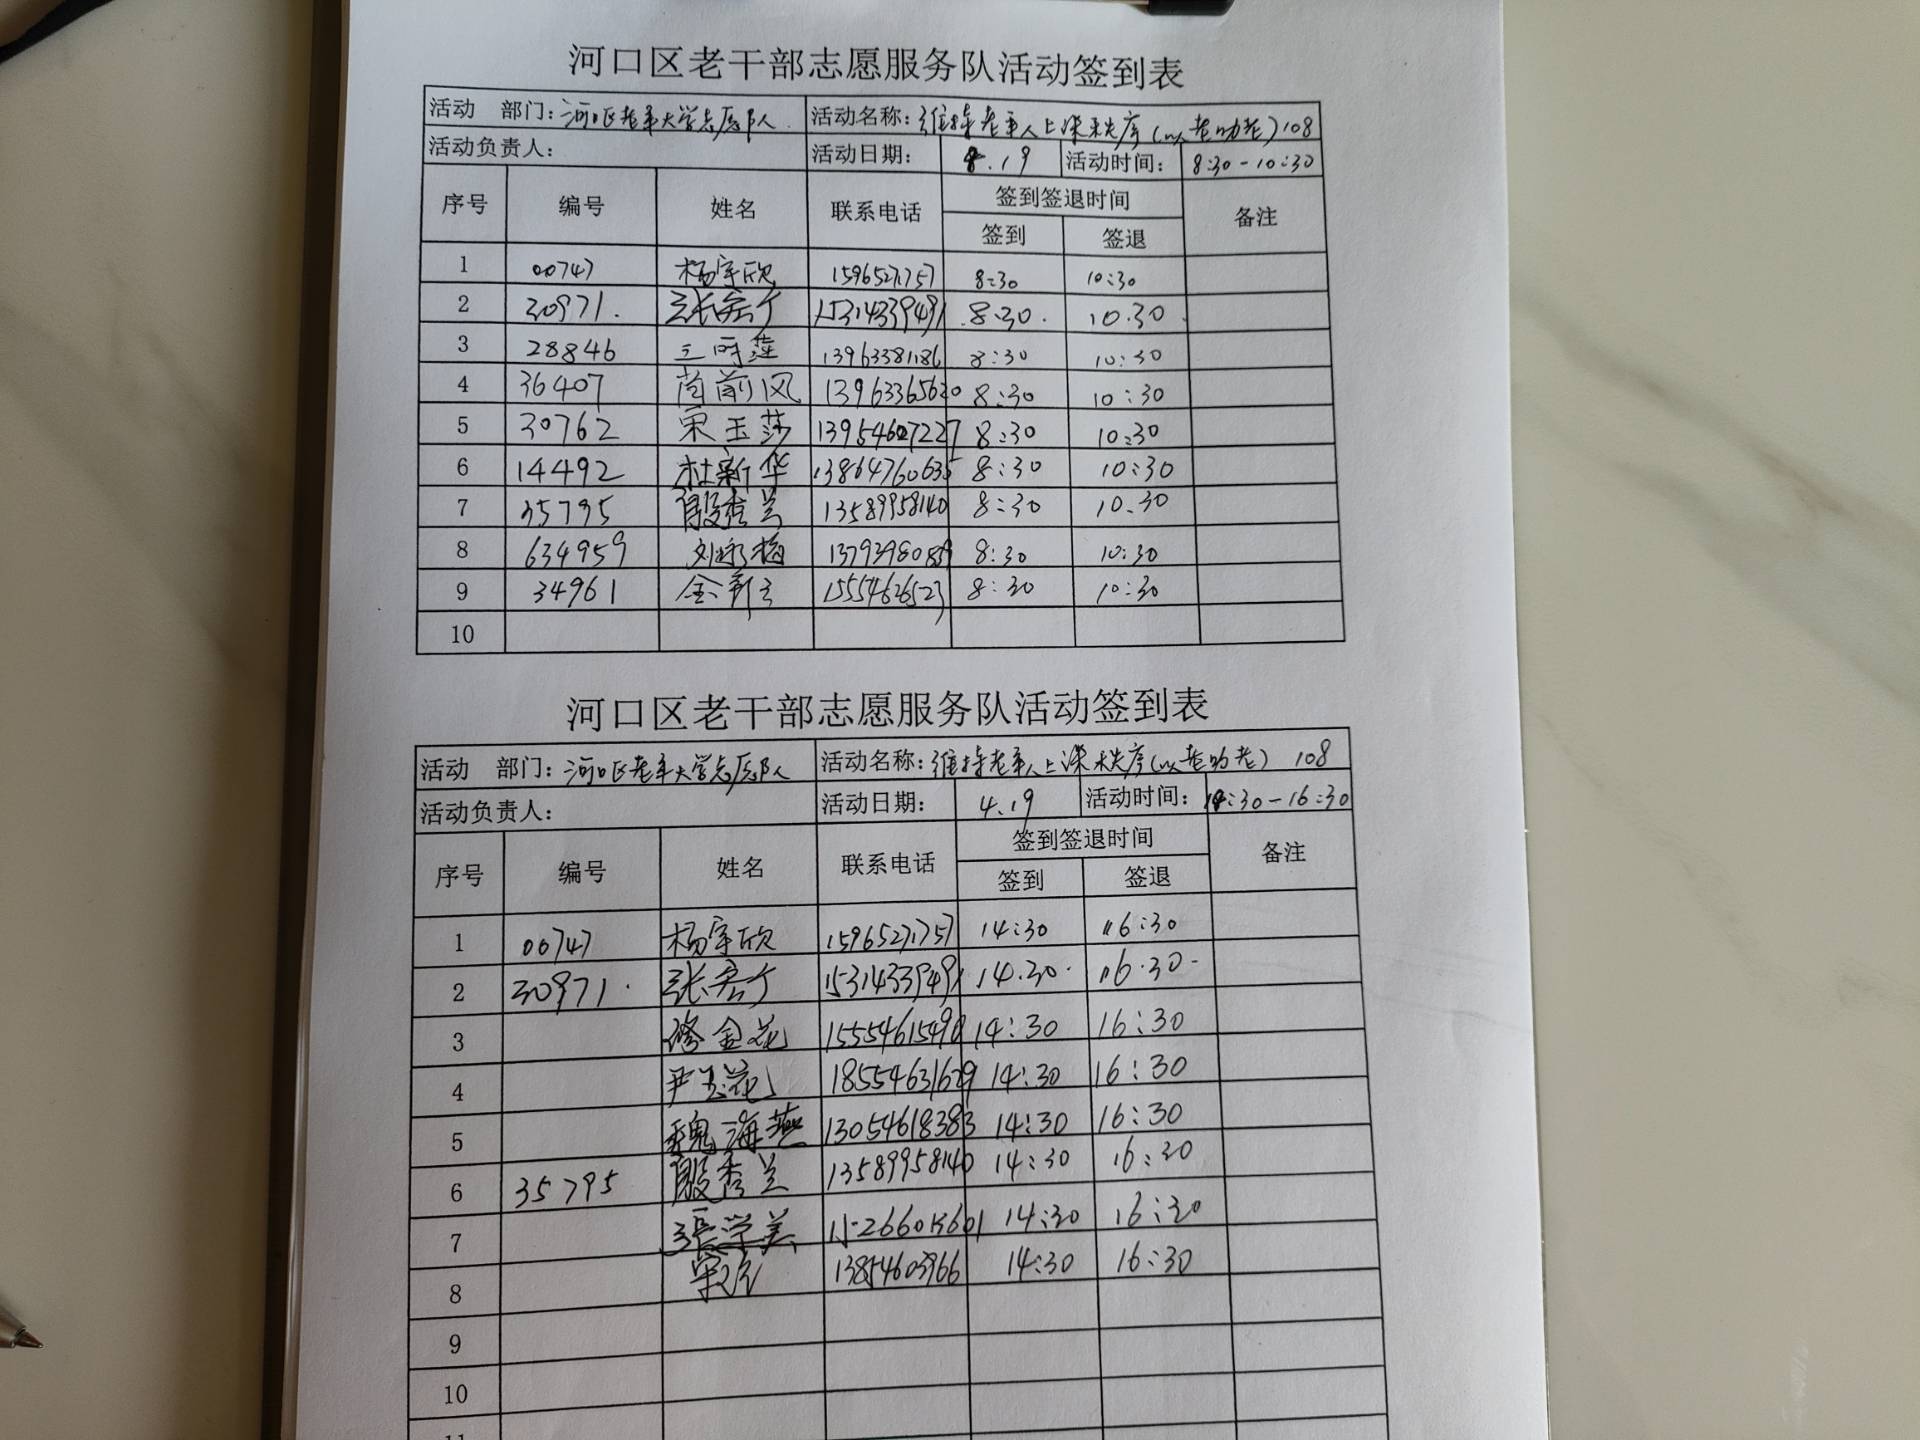 河口区老干部志愿服务队活动签到表
活动 部门：河口区老年大学志愿队 活动名称：维持老年人上课秩序（以老助老）108
活动负责人： 活动日期： 8.19 活动时间： 8:30-10:30
序号 编号 姓名 联系电话 签到签退时间 备注
签到 签退
1 00747 杨宇欣 8:30 10:30
2 30971. 15314339491 8:30. 10.30.
3 28846 8:30 10:30
4 36407 13963365620 8:30 10:30
5 30762 宋玉莎 13954607227 8:30 10:30
6 14492 杜新华 13864760635 8:30 10:30
7 35795 殷秀兰 13589958140 8:30 10.30
8 634959 8:30 10:30
9 34961 15554626523 8:30 10:30
10
河口区老干部志愿服务队活动签到表
活动 部门：河口区老年大学志愿队 活动名称：维持老年人上课秩序（以老助老） 108
活动负责人： 活动日期： 4.19 活动时间： 14:30-16:30
序号 编号 姓名 联系电话 签到签退时间 备注
签到 签退
1 00747 杨宇欣 14:30 16:30
2 30971. 15314339491 14.30. 16.30-
3 修金花 15554615490 14:30 16:30
4 尹玉花 18554631629 14:30 16:30
5 魏海燕 13054618383 14:30 16:30
6 35795 殷秀兰 13589958140 14:30 16:30
7 張学美 14:30 16:30
8 13854603966 14:30 16:30
9
10